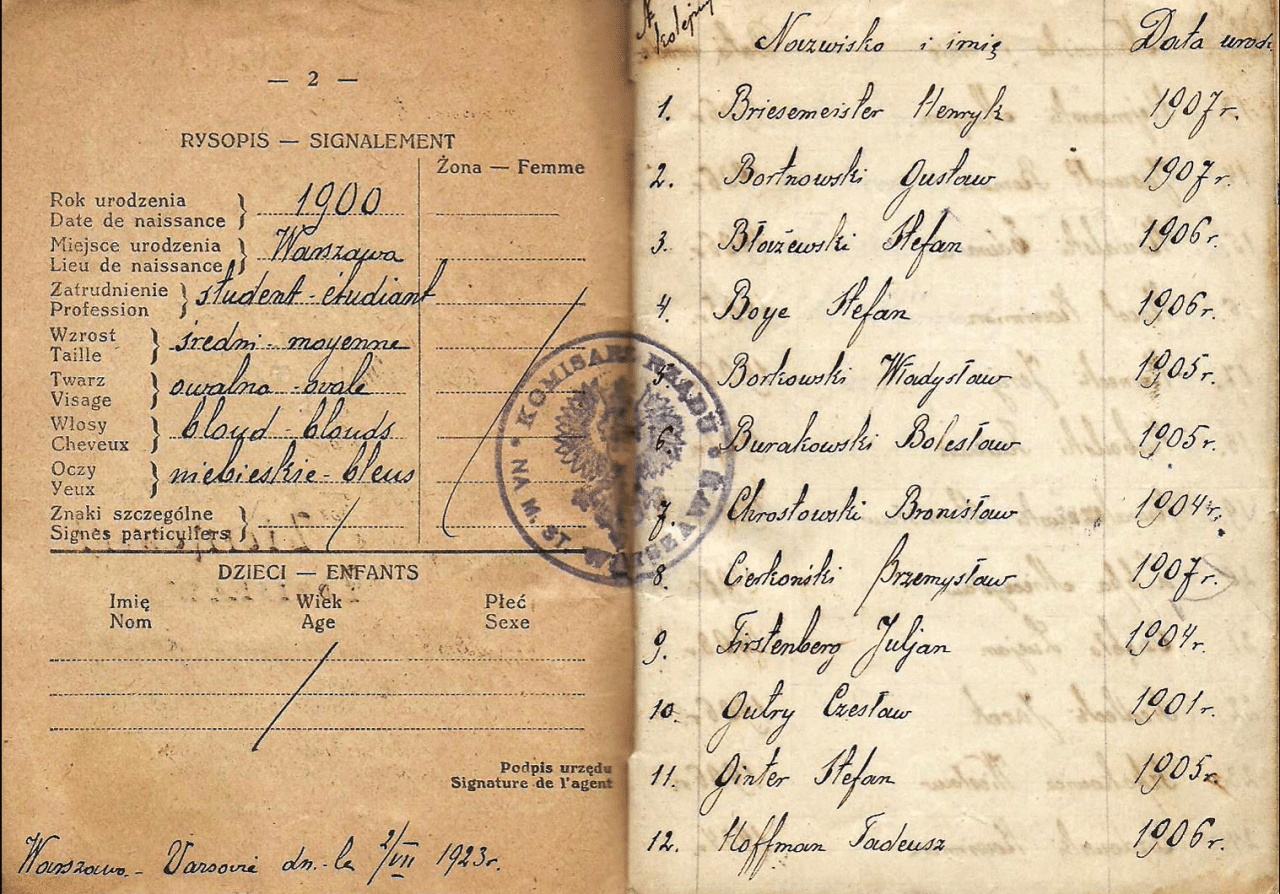 — 2 —
RYSOPIS — SIGNALEMENT
Żona — Femme
Rok urodzenia
Date de naissance } 1900
Miejsce urodzenia
Lieu de naissance } Warszawa
Zatrudnienie
Profession } student - étudiant
Wzrost
Taille } średni - moyenne
Twarz
Visage } owalna - ovale
Włosy
Cheveux } blond - blonds
Oczy
Yeux } niebieskie - bleus
Znaki szczególne
Signes particullers }
DZIECI — ENFANTS
Imię Wiek Płeć
Nom Age Sexe
Podpis urzędu
Signature de l'agent
Warszawa - Varsovie dn. - le 2/VII 1923r.
KOMISARZ RZĄDU • NA M. ST. WARSZAWĘ •
№ kolejny Nazwisko i imię Data urodz.
1. Briesemeister Henryk 1907 r.
2. Bortnowski Gustaw 1907 r.
3. Błażewski Stefan 1906 r.
4. Boye Stefan 1906 r.
5. Borkowski Władysław 1905 r.
6. Burakowski Bolesław 1905 r.
7. Chrostowski Bronisław 1904 r.
8. Cierkoński Przemysław 1907 r.
9. Firstenberg Juljan 1904 r.
10. Gutry Czesław 1901 r.
11. Ginter Stefan 1905 r.
12. Hoffman Tadeusz 1906 r.